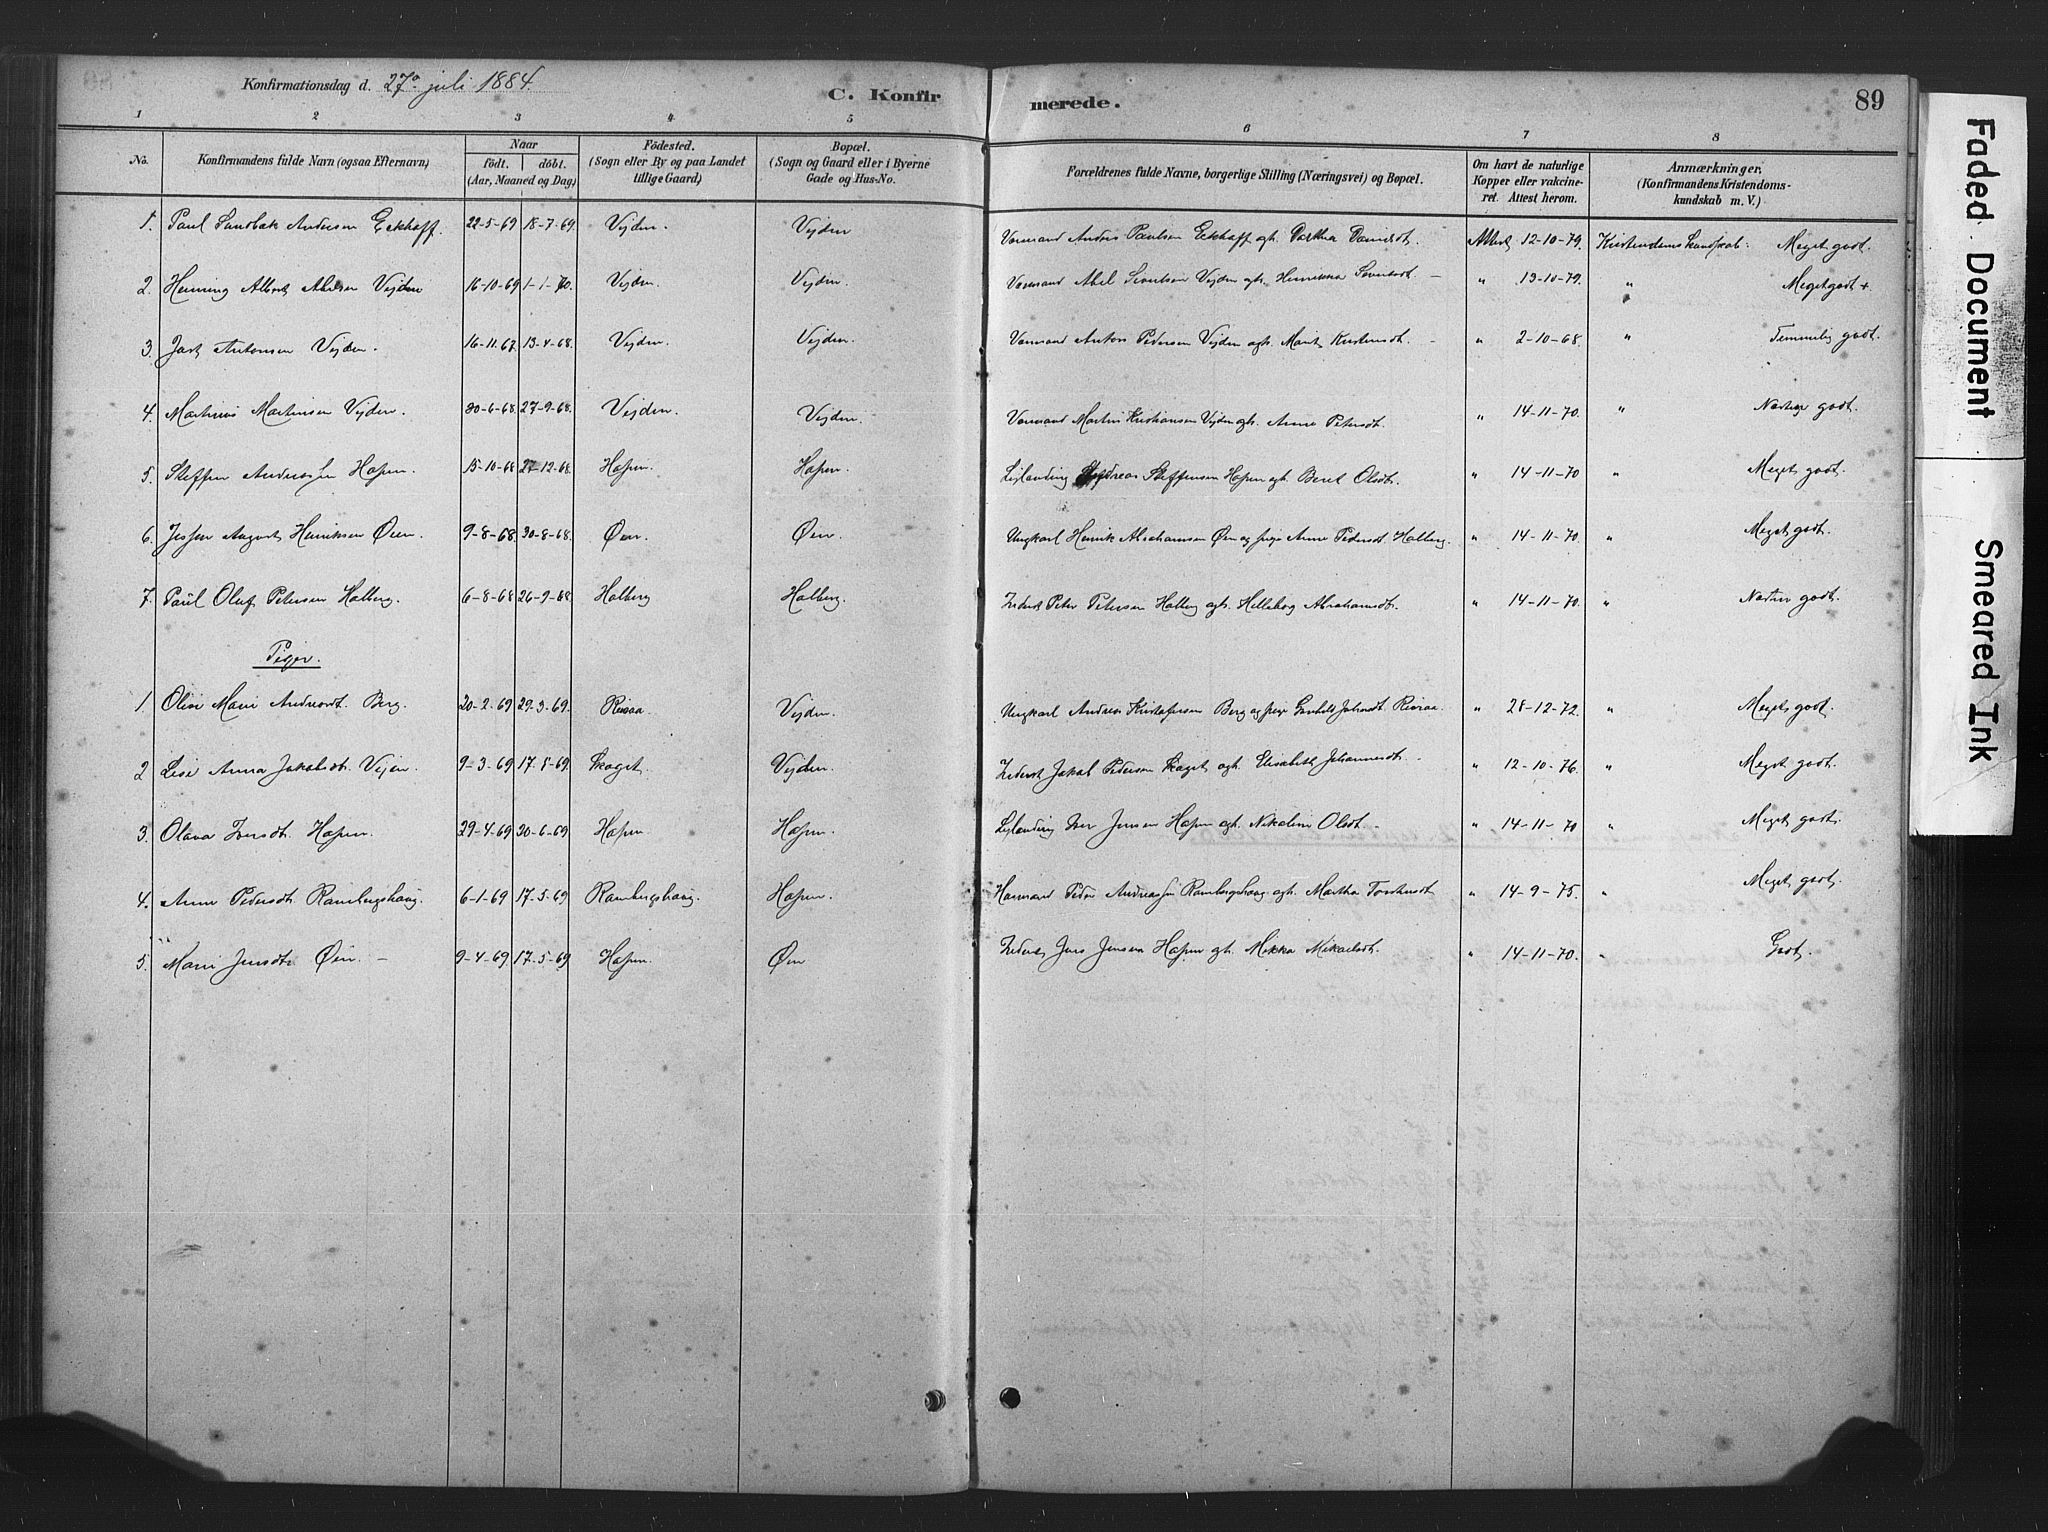 Konfirmationsdag d. 27de juli 1884.
C. Konfirmerede. 89
1 2 3 4 5 6 7 8
No. Konfirmandens fulde Navn (ogsaa Efternavn) Naar födt. döbt. (Aar, Maaned og Dag) Födested. (Sogn eller By og paa Landet tillige Gaard) Bopæl. (Sogn og Gaard eller i Byerne Gade og Hus-No. Forældrenes fulde Navne, borgerlige Stilling (Næringsvei) og Bopæl. Om havt de naturlige Kopper eller vakcineret. Attest herom. Anmærkninger. (Konfirmandens Kristendomskundskab m. V.)
1. Paul Sundbak Andersen Eckhoff. 22-5-69 18-7-69. Vejden. Vejden Anders Paulsen Eckhoff ogh. Dorthea Attest 12-10-79. Kristendomskundskab. Meget godt.
2. Henning Albert Abelsen Vejden 16-10-69 1-1-70. Vejden. Vejden. Abel Vejden ogh. " 13-10-79. " Meget godt +
3. Antonsen Vejden. 16-11-67. 13-4-68. Vejden. Vejden. Anton Pedersen Vejden ogh. Marit - " 2-10-68. " Temmelig godt.
4. Martinus Martinsen Vejden. 30-6-68. 27-9-68. Vejden. Vejden. Martin Kristiansen Vejden ogh. Anne Petersdt. " 14-11-70. " Næsten godt.
5. Steffen Andreassen Hopen. 15-10-68 27-12-68. Hopen. Hopen. Leilænding Andreas Steffensen Hopen ogh. Beret Olsdt. " 14-11-70 " Meget godt.
6. Jesper August Henriksen Øien. 9-8-68. 30-8-68. Øien. Øien. Ungkarl Henrik Abrahamsen Øien og pige Anne Pedersdt. Halberg. " 14-11-70. " Meget godt.
7. Paul Oluf Petersen Halberg. 6-8-68 26-9-68 Halberg Halberg. Inderst Peter Petersen Halberg ogh. Helleborg Abrahamsdt. " 14-11-70. " Næsten godt.
Piger.
1. Marie Andreasdt. Berg. 20-2-69 29-3-69. Risaa. Vejden. Ungkarl Andreas Kristofersen Berg og pige Gunhild " 28-12-72. " Meget godt.
2 Anna Jakobsdt. Vejen. 9-3-69 17-5-69. Skaget. Vejden. Inderst Jakob Pedersen Skaget ogh. Elisabeth Johannesdt. - " 12-10-76. " Meget godt.
3. Olava Iversdt. Hopen. 29-4-69 20-6-69 Hopen Hopen. Leilænding Iver Jensen Hopen ogh. Nikoline Olsdt. - " 14-11-70 " Meget godt.
4. Anne Pedersdt. Rambergshaug. 6-1-69 17-5-69 Rambergshaug. Hopen. Husmand Peder Andreassen Rambergshaug ogh. Martha " 14-9-75. " Meget godt.
5. Marie Jensdt. Øien. - 9-4-69 17-5-69 Hopen. Øien Inderst Jens Jensen Hopen ogh. Mikka Mikaelsdt. " 14-11-70. " Godt.
Faded Document
Smeared Ink